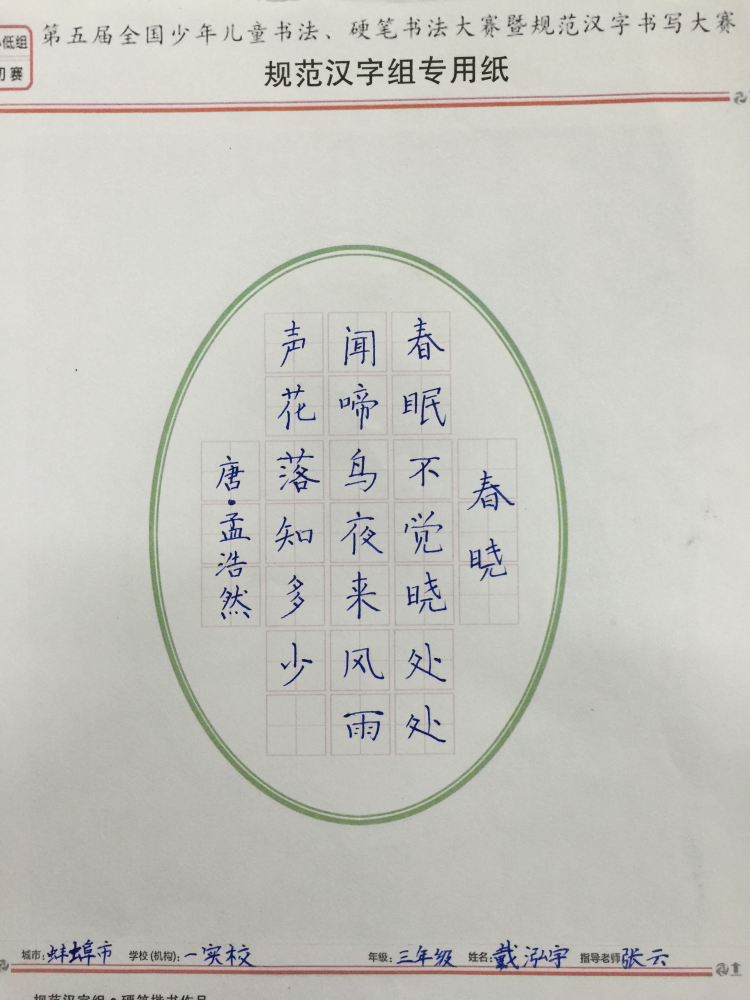 低组
初赛
第五届全国少年儿童书法、硬笔书法大赛暨规范汉字书写大赛
规范汉字组专用纸
春晓
春眠不觉晓处处
闻啼鸟夜来风雨
声花落知多少
唐·孟浩然
城市:蚌埠市 学校(机构):一实校 年级:三年级 姓名:戴泓宇 指导老师张云
规范汉字组·硬笔楷书作品